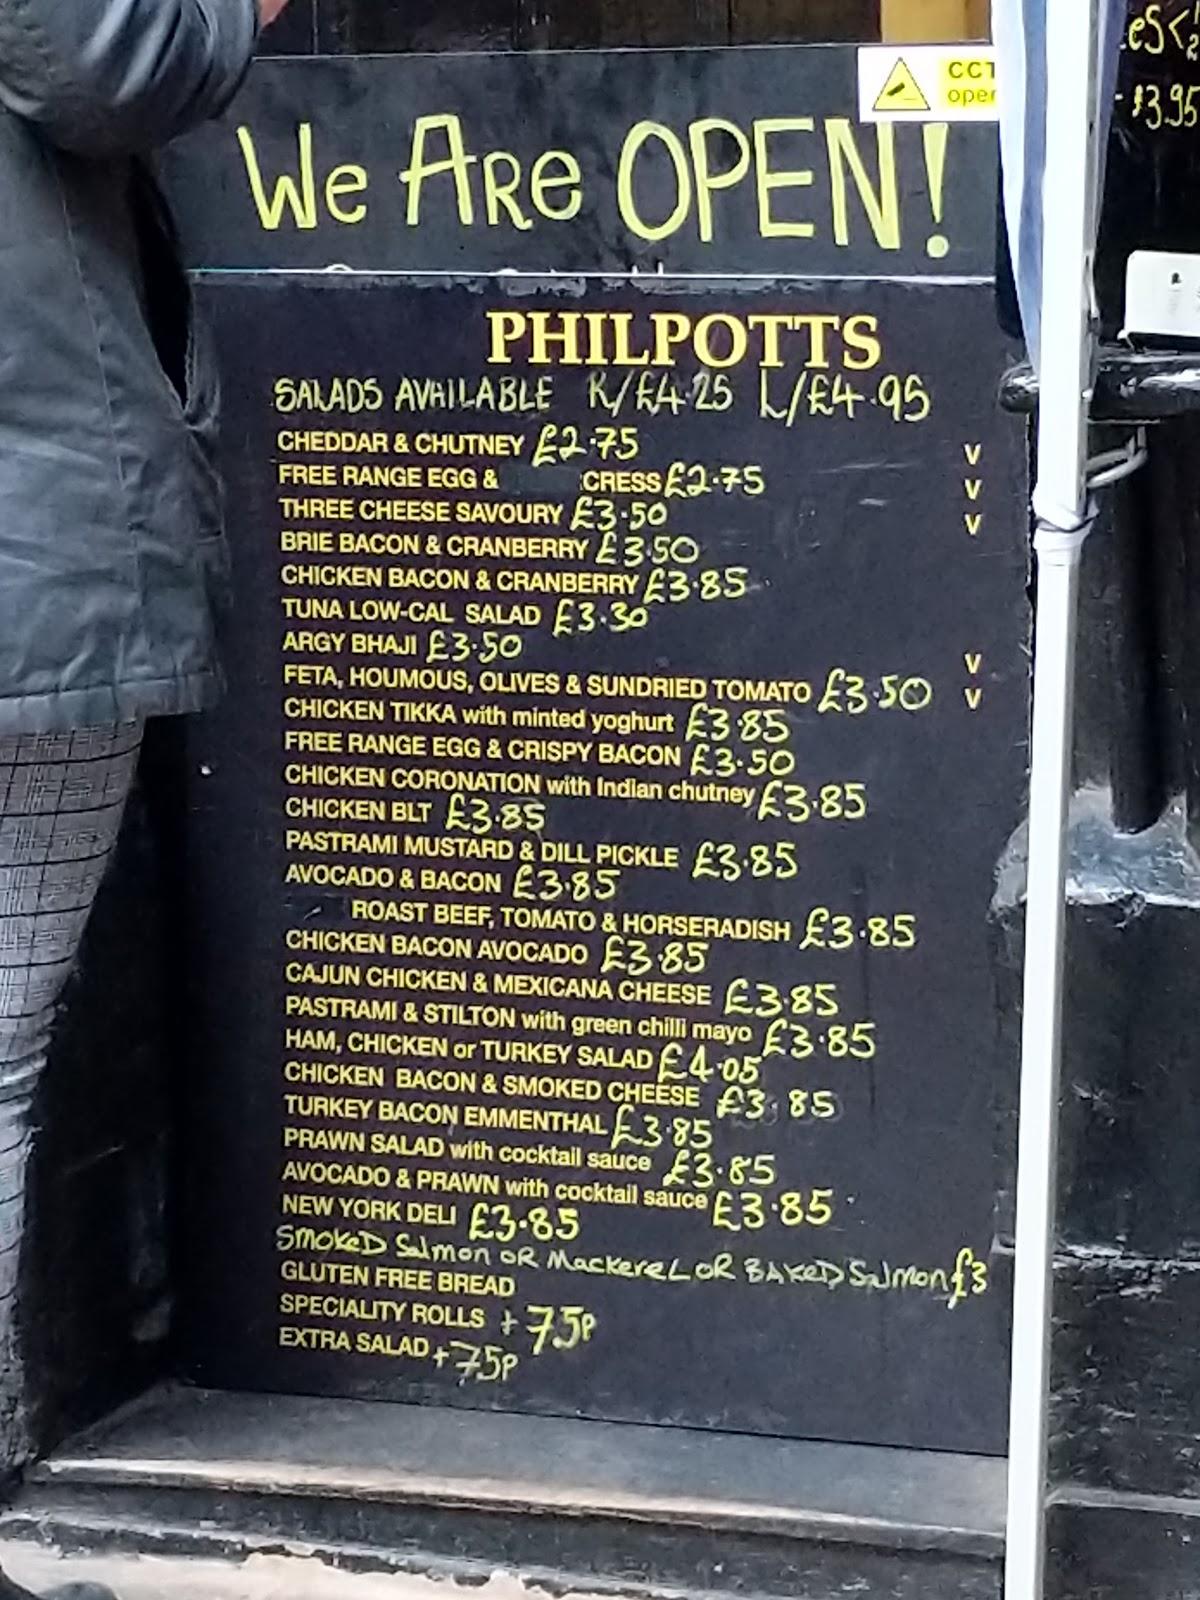 CCT
open
es<
£3.95
We Are OPEN!
PHILPOTTS
SALADS AVAILABLE R/£4.25 L/£4.95
CHEDDAR & CHUTNEY £2.75 V
FREE RANGE EGG & CRESS £2.75 V
THREE CHEESE SAVOURY £3.50 V
BRIE BACON & CRANBERRY £3.50
CHICKEN BACON & CRANBERRY £3.85
TUNA LOW-CAL SALAD £3.30
ARGY BHAJI £3.50 V
FETA, HOUMOUS, OLIVES & SUNDRIED TOMATO £3.50 V
CHICKEN TIKKA with minted yoghurt £3.85
FREE RANGE EGG & CRISPY BACON £3.50
CHICKEN CORONATION with Indian chutney £3.85
CHICKEN BLT £3.85
PASTRAMI MUSTARD & DILL PICKLE £3.85
AVOCADO & BACON £3.85
ROAST BEEF, TOMATO & HORSERADISH £3.85
CHICKEN BACON AVOCADO £3.85
CAJUN CHICKEN & MEXICANA CHEESE £3.85
PASTRAMI & STILTON with green chilli mayo £3.85
HAM, CHICKEN or TURKEY SALAD £4.05
CHICKEN BACON & SMOKED CHEESE £3.85
TURKEY BACON EMMENTHAL £3.85
PRAWN SALAD with cocktail sauce £3.85
AVOCADO & PRAWN with cocktail sauce £3.85
NEW YORK DELI £3.85
SMOKED SALMON OR MACKEREL OR BAKED SALMON £3
GLUTEN FREE BREAD
SPECIALITY ROLLS + 75P
EXTRA SALAD + 75P